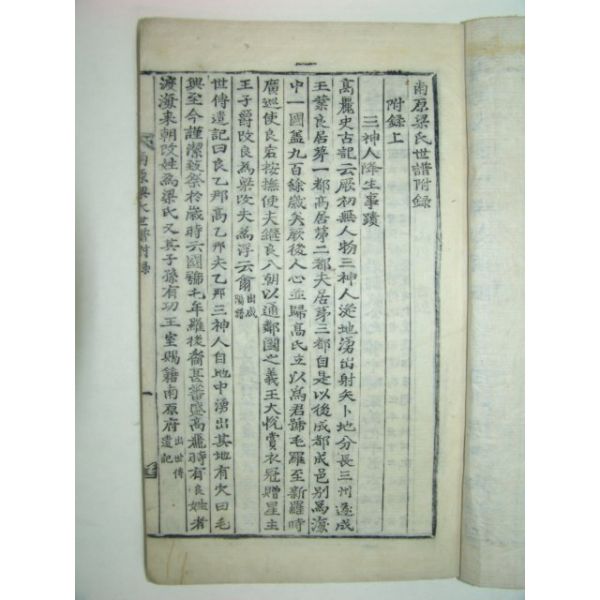 南原梁氏世譜附錄
附錄上
三神人降生事蹟
高麗史古記云厥初無人物三神人從地湧出射矢卜地分長三州遂成
王業良居第一都高居第二都夫居第三都自是以後成都成邑別為
中一國盖九百餘歲矣厥後人心並歸高氏立以為君號毛羅至新羅時
廣巡使良宕按撫使夫繼良入朝以通鄰國之義王大悅賞衣冠贈星主
王子爵改良為梁改夫為浮云爾 出成陽譜
世傳遺記曰良乙那高乙那夫乙那三神人自地中湧出其地有穴曰毛
興至今謹潔致祭於歲時云國號乇年羅後裔甚蕃盛高麗時有良姓者
渡海來朝改姓為梁氏又其子孫有功王室賜籍南原府 出世傳遺記
南原梁氏世譜附錄
一